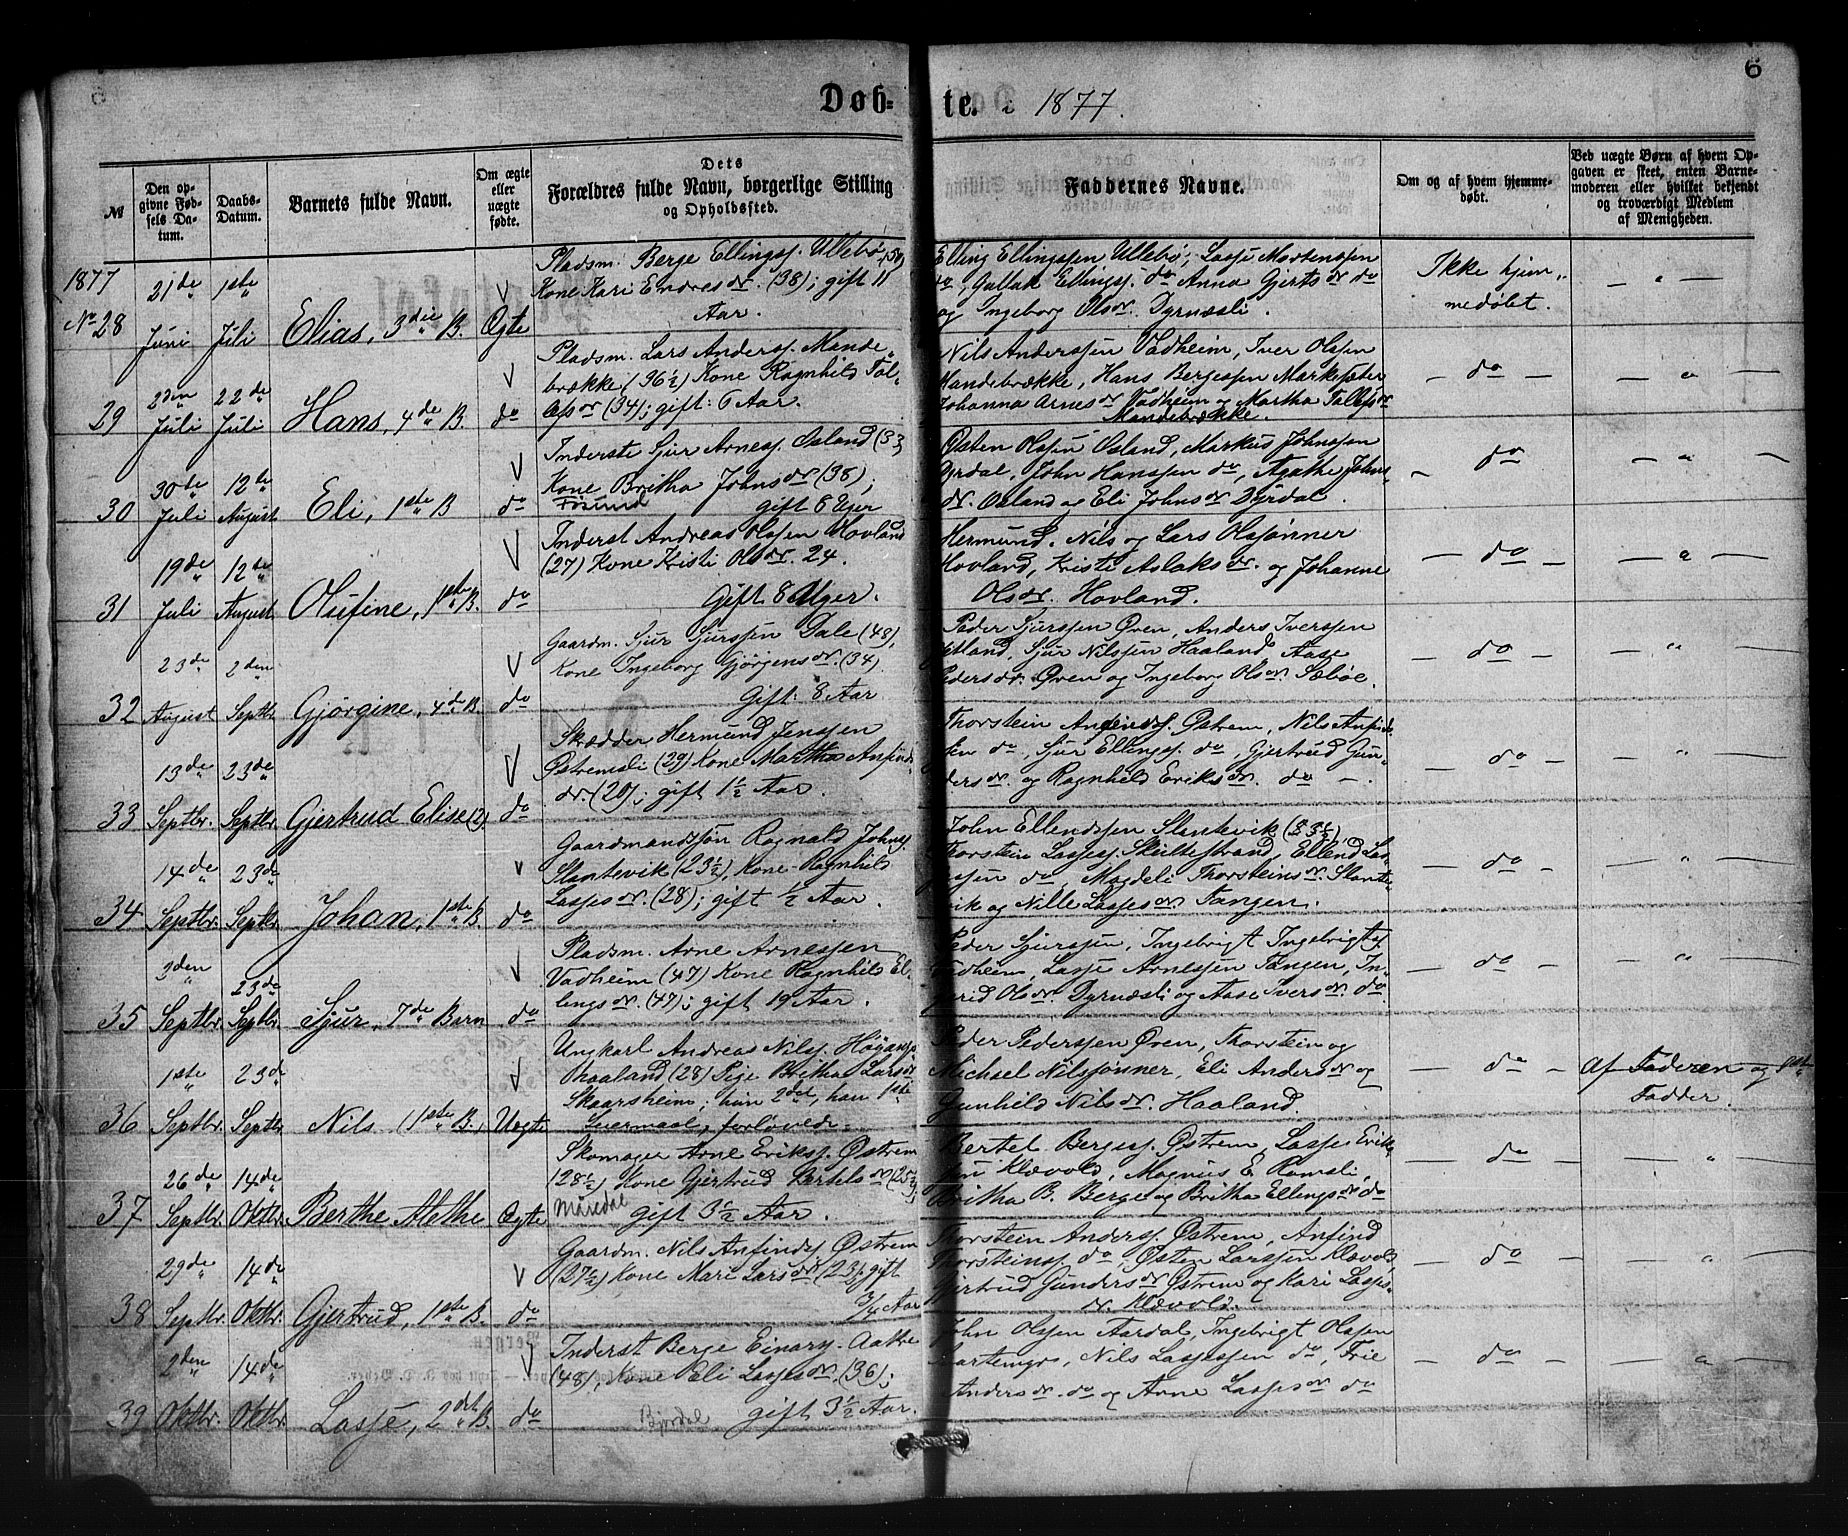 6
Døb- te. i 1877.
№
Den op-
givne Fød-
sels Da-
tum.
Daabs-
Datum.
Barnets fulde Navn.
Om ægte
eller
uægte
fødte.
Dets
Forældres fulde Navn, borgerlige Stilling
og Opholdssted.
Faddernes Navne.
Om og af hvem hjemme-
døbt.
Ved uægte Børn af hvem Op-
gaven er skeet, enten Barne-
moderen eller hvilket bekjendt
og troværdigt Medlem
af Menigheden.
1877
No 28
21de Juni
1ste Juli
Elias, 3die B.
Ægte
Pladsm. Berge Ellingss. Ullebø
Kone Kari Endresdr. (38); gift 11
Aar.
Elling Ellingssen Ullebø; Lasse Mortenssen
do, Gullak Ellingss. do Anna Gjertsdr do
og Ingeborg Olsdr. Dyrnæsli.
Ikke hjem-
medøbt.
— " —
29
2den Juli
22de Juli
Hans, 4de B.
do
Pladsm. Lars Anderss. Mande-
brække (36½) Kone Ragnhild Tol-
lefsdr (34); gift: 6 Aar.
Nils Anderssen Vadheim, Iver Olssen
Mandebrække, Hans Bergessen Markesæter
Johanna Arnesdr Vadheim og Martha Tollefsdr
Mandebrække.
— do —
— " —
30
30de Juli
12te August
Eli, 1ste B
do
Inderste Sjur Arness. Osland (33
Kone Britha Johnsdr (38);
gift 8 Uger
Østen Olssen Osland, Markus Johnssen
Dyrdal, John Hanssen do, Agathe Johns-
dr. Osland og Eli Johnsdr Dyrdal.
— do —
— " —
31
19de Juli
12te August
Olufine, 1ste B.
do
Inderst Andreas Olssen Hovland
(27) Kone Kristi Olsdr. 24.
Gift 8 Uger.
Hermund, Nils og Lars Olssønner
Hovland, Kristi Aslaksdr. og Johanne
Olsdr. Hovland.
— do —
— " —
32
23de August
2den Septbr
Gjørgine, 4de B.
do
Gaardm. Sjur Sjurssen Dale (48),
Kone Ingeborg Gjørgensdr. (34)
Gift: 8 Aar
Peder Sjurssen Øren, Anders Iverssen
Sjur Nilssen Haaland Aase
Pedersdr. Øren og Ingeborg Olsdr. Sæbøe.
— do —
— " —
33
13de Septbr.
23de Septbr
Gjertrud Elise (2)
do
Skrædder Hermund Jenssen
Østremsli (29) Kone Martha Anfinds-
dr. (20); gift 1½ Aar.
Thorstein Anderss. Østrem, Nils Anfinds-
sen do, Sjur Ellingss. do, Gjertrud Gun-
dersdr. og Ragnhild Eriksdr. do —.
— do —
— " —
34
14de Septbr.
23de Septbr
Johan, 1ste B.
do
Gaardmandssøn Ragnald Johnss.
Slantevik (23½), Kone Ragnhild
Lassesdr. (28); gift ½ Aar.
John Ellendssen Slantevik (
Thorstein Lassess. Skiltestrand, Ellend Las-
sessen do, Magdeli Thorsteinsdr. Slante-
vik og Nille Lassesdr Tangen.
— do —
— " —
35
3den Septbr.
23de Septbr
Sjur, 7de Barn
do
Pladsm. Arne Arnessen
Vadheim (47) Kone Ragnhild El-
lingsdr. (47); gift 19 Aar.
Peder Sjurssen, Ingebrigt Ingebrigtss.
Vadheim, Lasse Arnessen Tangen, In-
grid Olsdr. Dyrnæsli og Aase Iversdr. do.
— do —
— " —
36
1ste Septbr.
23de Septbr
Nils (1ste B.)
Uægte
Ungkarl Andreas Nilss.
Haaland (28) Pige Britha Larsdr
Skaarsheim; hun 2det, han 1ste
Leiermaal, forlovede.
Peder Pederssen Øren, Thorstein og
Michael Nilssønner, Eli Andersdr og
Gunhild Nilsdr. Haaland.
— do —
Af Faderen og 1ste
Fadder.
37
26de Septbr.
14de Oktbr.
Berthe Alethe
Ægte
Skomager Arne Erikss. Østrem
(28½) Kone Gjertrud
Måredal
gift 3½ Aar.
Bertel Bergess. Østrem, Lasse Erik-
sen Klævold, Magnus E. Ramsli,
Britha B. Berge og Britha Ellingsdr. do
— do —
— " —
38
29de Septbr.
14de Oktbr.
Gjertrud, 1ste B.
do
Gaardm. Nils Anfindss. Østrem
(27½) Kone Mari Larsdr (23); gift
¾ Aar
Thorstein Anderss. Østrem, Anfind
Thorsteinss. do, Østen Larssen Klævold
Gjertrud Gundersdr Østrem og Kari Lasses-
dr. Klævold.
— do —
— " —
39
2den Oktbr.
14de Oktbr.
Lasse, 2det B.
do
Inderst Berge Einarss.
(48), Kone Eli Lassesdr. (36);
Bjordal gift 3½ Aar.
John Olssen Aardal, Ingebrigt Olssen
Nils Lassessen do,
Andersdr. do og Arne Lassesdr do
— do —
— " —